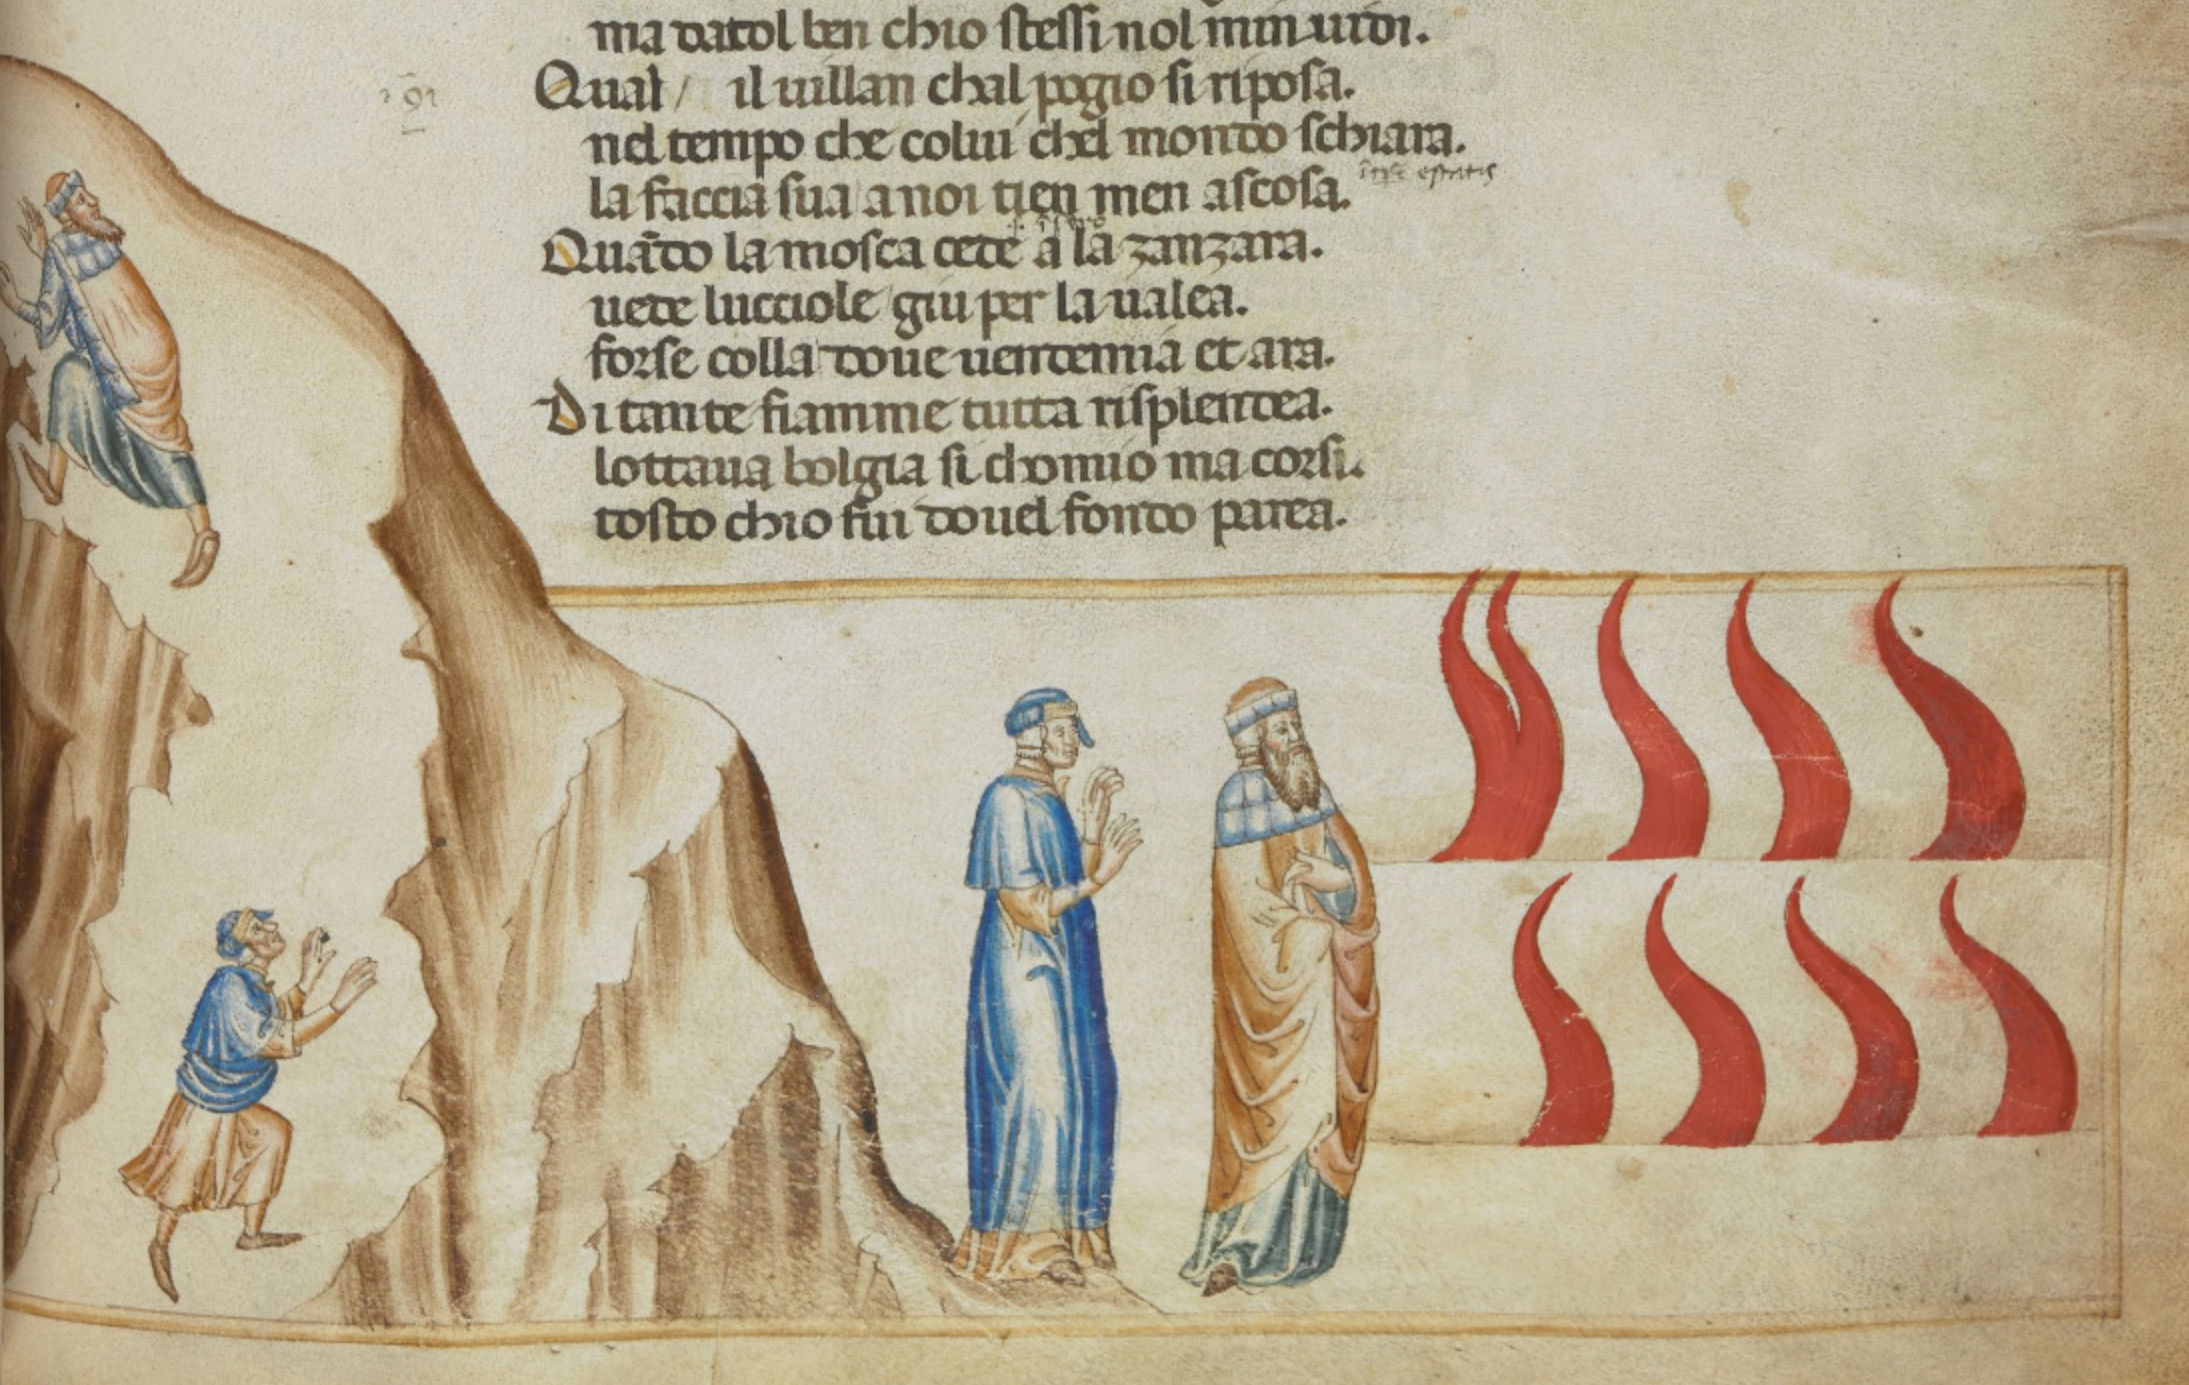 ma datol ben chio stessi nol min uidi.
Qual / il uillan chal pogio si riposa.
nel tempo che colui chel mondo schiara.
la faccia sua a noi tien men ascosa.
estatis
Quādo la mosca cede a la zanzara.
uede lucciole giu per la ualea.
forse colla doue uendemia et ara.
Di tante fiamme tutta risplendea.
lottaua bolgia si chomio ma corsi.
tosto chio fui douel fondo parea.